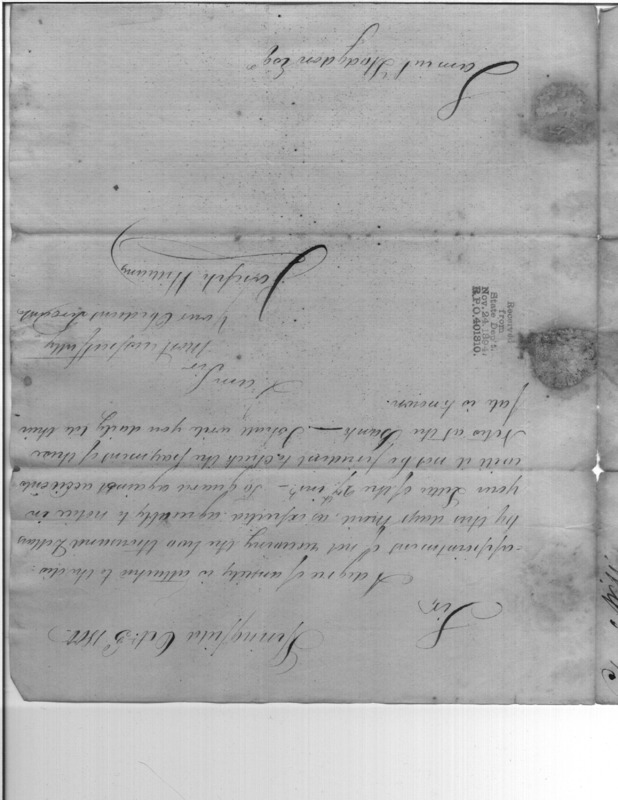 Springfield Oct. 3d 1800
Sir,
A degree of anxiety is attached to the dis-
-appointment of not receiving the two thousand Dollars
by this days Mail, as expected agreeably to notice in
your Letter of the 27th inst - To guard against accidents
will it not be prudent to check the payment of those
Notes at the Bank - I shall write you daily till their
fate is known.
I am Sir
most respectfully
Your Obedient Servant
Joseph Williams
Samuel Hodgdon Esqr
Received
from
State Dep't.
Nov. 24, 1894,
R.P.O. 401310.